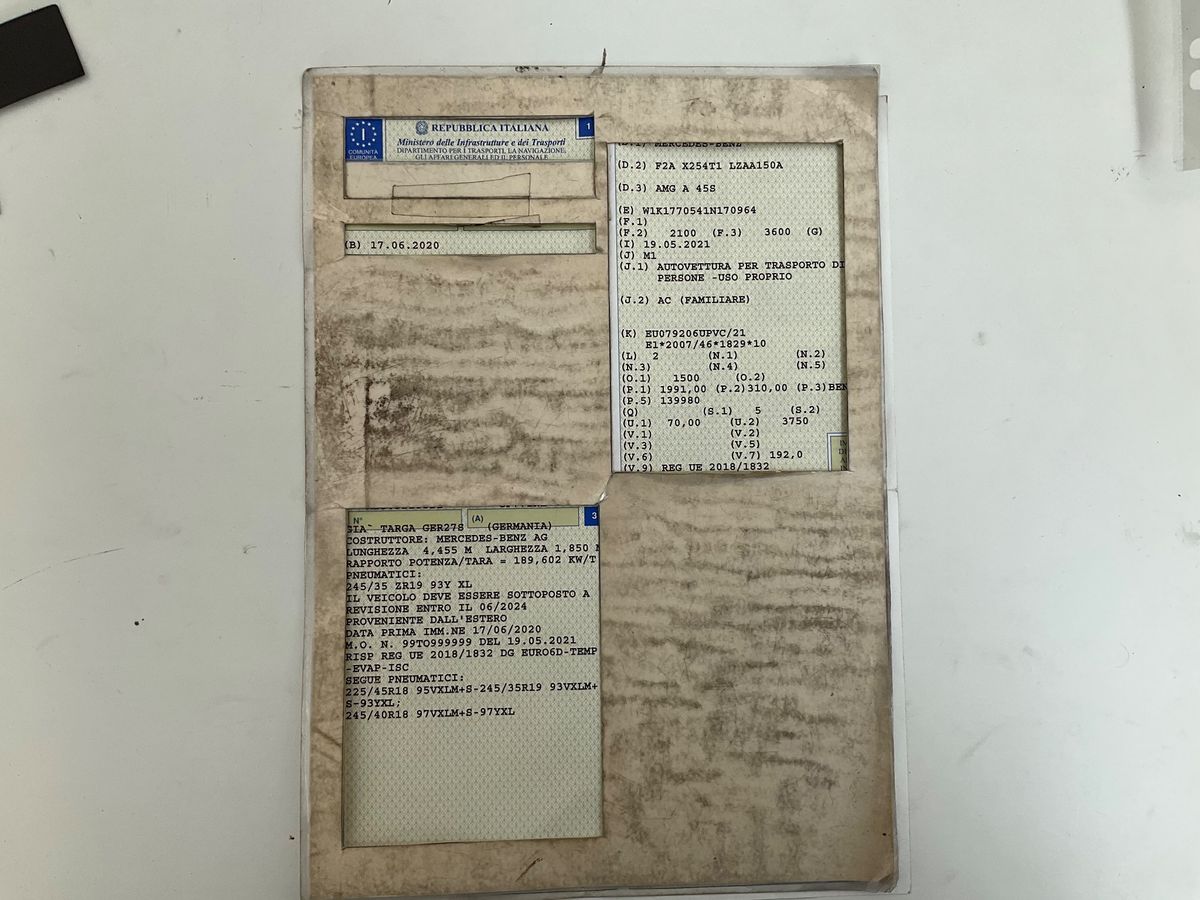 COMUNITÀ
EUROPEA
I
REPUBBLICA ITALIANA
1
Ministero delle Infrastrutture e dei Trasporti
DIPARTIMENTO PER I TRASPORTI, LA NAVIGAZIONE,
GLI AFFARI GENERALI ED IL PERSONALE
(B) 17.06.2020
(D.1) MERCEDES-BENZ
(D.2) F2A X254T1 LZAA150A
(D.3) AMG A 45S
(E) W1K1770541N170964
(F.1)
(F.2) 2100 (F.3) 3600 (G)
(I) 19.05.2021
(J) M1
(J.1) AUTOVETTURA PER TRASPORTO DI
PERSONE -USO PROPRIO
(J.2) AC (FAMILIARE)
(K) EU079206UPVC/21
E1*2007/46*1829*10
(L) 2 (N.1) (N.2)
(N.3) (N.4) (N.5)
(O.1) 1500 (O.2)
(P.1) 1991,00 (P.2)310,00 (P.3)BEN
(P.5) 139980
(Q) (S.1) 5 (S.2)
(U.1) 70,00 (U.2) 3750
(V.1) (V.2)
(V.3) (V.5)
(V.6) (V.7) 192,0
(V.9) REG UE 2018/1832
N° (A) 3
GIA` TARGA GER278 (GERMANIA)
COSTRUTTORE: MERCEDES-BENZ AG
LUNGHEZZA 4,455 M LARGHEZZA 1,850
RAPPORTO POTENZA/TARA = 189,602 KW/T
PNEUMATICI:
245/35 ZR19 93Y XL
IL VEICOLO DEVE ESSERE SOTTOPOSTO A
REVISIONE ENTRO IL 06/2024
PROVENIENTE DALL'ESTERO
DATA PRIMA IMM.NE 17/06/2020
M.O. N. 99TO999999 DEL 19.05.2021
RISP REG UE 2018/1832 DG EURO6D-TEMP
-EVAP-ISC
SEGUE PNEUMATICI:
225/45R18 95VXLM+S-245/35R19 93VXLM+
S-93YXL;
245/40R18 97VXLM+S-97YXL